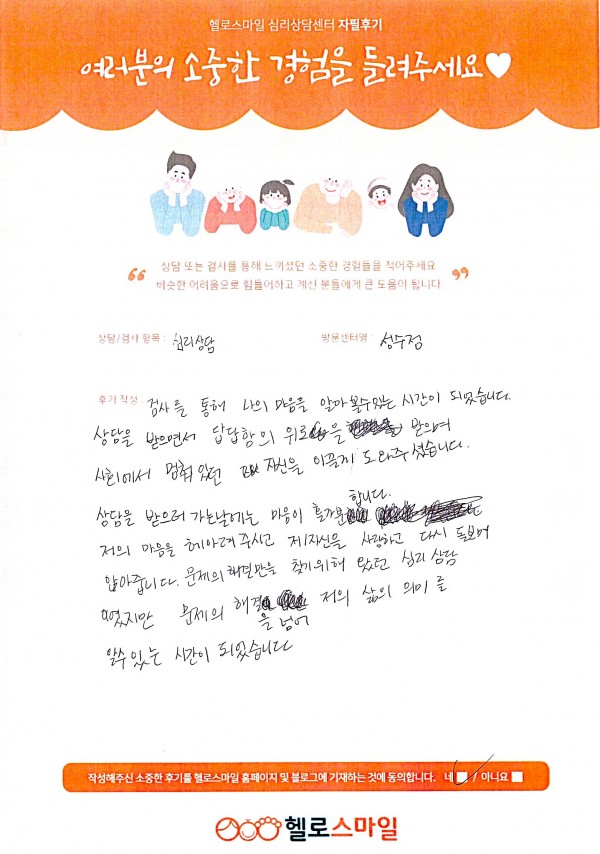 헬로스마일 심리상담센터 자필후기
여러분의 소중한 경험을 들려주세요
상담 또는 검사를 통해 느끼셨던 소중한 경험들을 적어주세요
비슷한 어려움으로 힘들어하고 계신 분들에게 큰 도움이 됩니다
상담/검사 항목 : 심리상담
방문센터명 : 성수점
후기 작성 : 검사를 통해 나의 마음을 알아 볼수있는 시간이 되었습니다.
상담을 받으면서 답답함의 위로을 받으며
사회에서 멈춰 있던 자신을 이끌게 도와주셨습니다.
상담을 받으러 가는날에는 마음이 홀가분합니다.
저의 마음을 헤아려 주시고 제자신을 사랑하고 다시 돌보며
안아줍니다. 문제의 해결만을 찾기위해 왔던 심리 상담
이였지만 문제의 해결을 넘어 저의 삶의 의미를
알수 있는 시간이 되었습니다
작성해주신 소중한 후기를 헬로스마일 홈페이지 및 블로그에 기재하는 것에 동의합니다. 네 / 아니요
헬로스마일